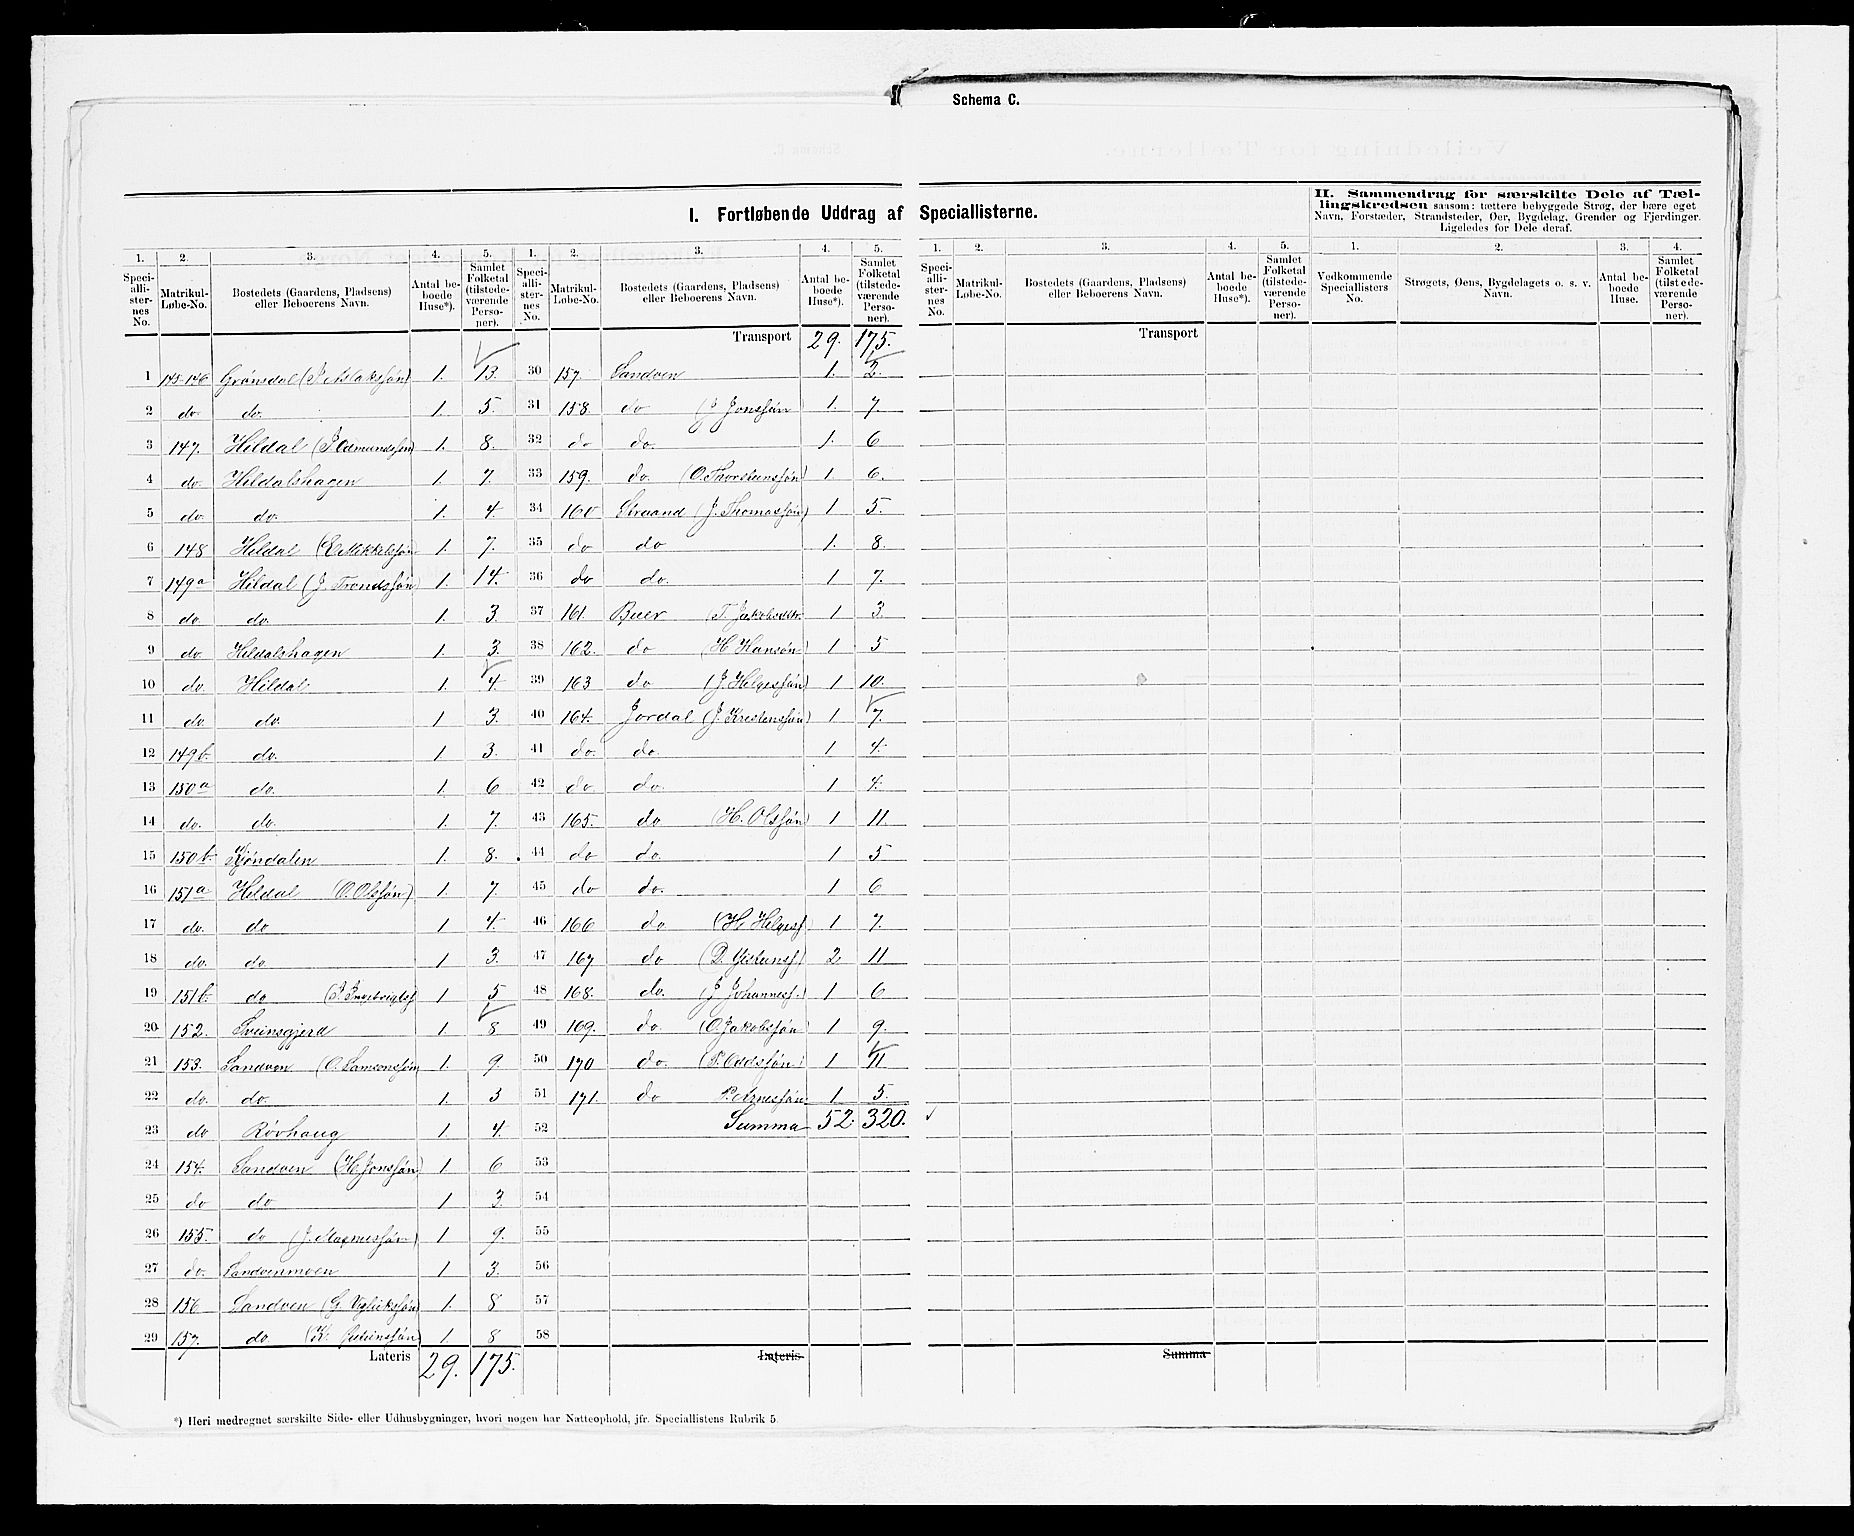 Schema C.
I. Fortløbende Uddrag af Speciallisterne.
II. Sammendrag for særskilte Dele af Tæl-
lingskredsen saasom: tættere bebyggede Strøg, der bære eget
Navn, Forstæder, Strandsteder, Øer, Bygdelag, Grender og Fjerdinger.
Ligeledes for Dele deraf.
1. 2. 3. 4. 5. 1. 2. 3. 4. 5. 1. 2. 3. 4. 5. 1. 2. 3. 4.
Speci-alli-ster-nes No. Matrikul-Løbe-No. Bostedets (Gaardens, Pladsens) eller Beboerens Navn. Antal be-boede Huse*). Samlet Folketal (tilstede-værende Perso-ner).
Speci-alli-ster-nes No. Matrikul-Løbe-No. Bostedets (Gaardens, Pladsens) eller Beboerens Navn. Antal be-boede Huse*). Samlet Folketal (tilstede-værende Perso-ner).
Speci-alli-ster-nes No. Matrikul-Løbe-No. Bostedets (Gaardens, Pladsens) eller Beboerens Navn. Antal be-boede Huse*). Samlet Folketal (tilstede-værende Perso-ner).
Vedkommende Speciallisters No. Strøgets, Øens, Bygdelagets o. s. v. Navn. Antal be-boede Huse. Samlet Folketal (tilstede-værende Perso-ner).
1 145-146 Grønsdal (J. Aslaksøn) 1. 13.
2 do. do. 1. 5.
3 147. Hildal (J. Odmundsøn) 1. 8.
4 do. Hildalshagen 1. 7.
5 do. do. 1. 4.
6 148 Hildal (E. Mikkelsøn 1. 7.
7 149a Hildal (J. Trondssøn 1. 14.
8 do. do. 1. 3.
9 do. Hildalshagen 1. 3.
10 do. Hildal 1. 4.
11 do. do 1 3.
12 149b. do. 1 3.
13 150a do. 1. 6
14 do. do. 1. 7.
15 150b 1. 8.
16 151a Hildal (O. Olssøn) 1. 7.
17 do. do 1 4.
18 do. do. 1 3.
19 151b. do 1 5
20 152. Sveinsgjerd 1. 8
21 153. Sandven (O. Samsonssøn 1. 9.
22 do. do. 1. 3
23 do Røvhaug 1. 4.
24 154. Sandven (H. Jonssøn) 1. 6
25 do do 1 3.
26 155. do (J. Magnessøn) 1 9.
27 do. Sandvenmoen 1 3.
28 156 Sandven (G. Vigleikssøn) 1. 8
29 157. do. 1 8
Lateris 29. 175.
Transport 29. 175.
30 157. Sandven 1. 2.
31 158. do (J. Jonssøn) 1. 7.
32 do do. 1. 6
33 159. do. (O. Thorsteinssøn) 1 6.
34 160 Straand (J. Thomassøn) 1 5.
35 do do 1. 8.
36 do do. 1 7.
37 161. Buer (T. Jakobsdtr. 1 3.
38 162. do (H. Hansøn) 1 5
39 163 do (J. Helgessøn) 1 10.
40 164. Jordal (J. Kristenssøn) 1 7.
41 do. do. 1 4.
42 do do. 1 4.
43 165. do (H. Olssøn) 1 11.
44 do do. 1 5
45 do do. 1 6
46 166 do. (H. Helgess 1 7.
47 167 do 2 11
48 168. do. (J. Johanness.) 1 6
49 169. do. (O. Jakobssøn) 1 9.
50 170 do. (P. Oddssøn) 1 11
51 171. do P. Arnessøn 1 5.
52 Summa 52. 320.
53
54
55
56
57
58
Lateris
Transport
Summa
*) Heri medregnet særskilte Side- eller Udhusbygninger, hvori nogen har Natteophold, jfr. Speciallistens Rubrik 5.